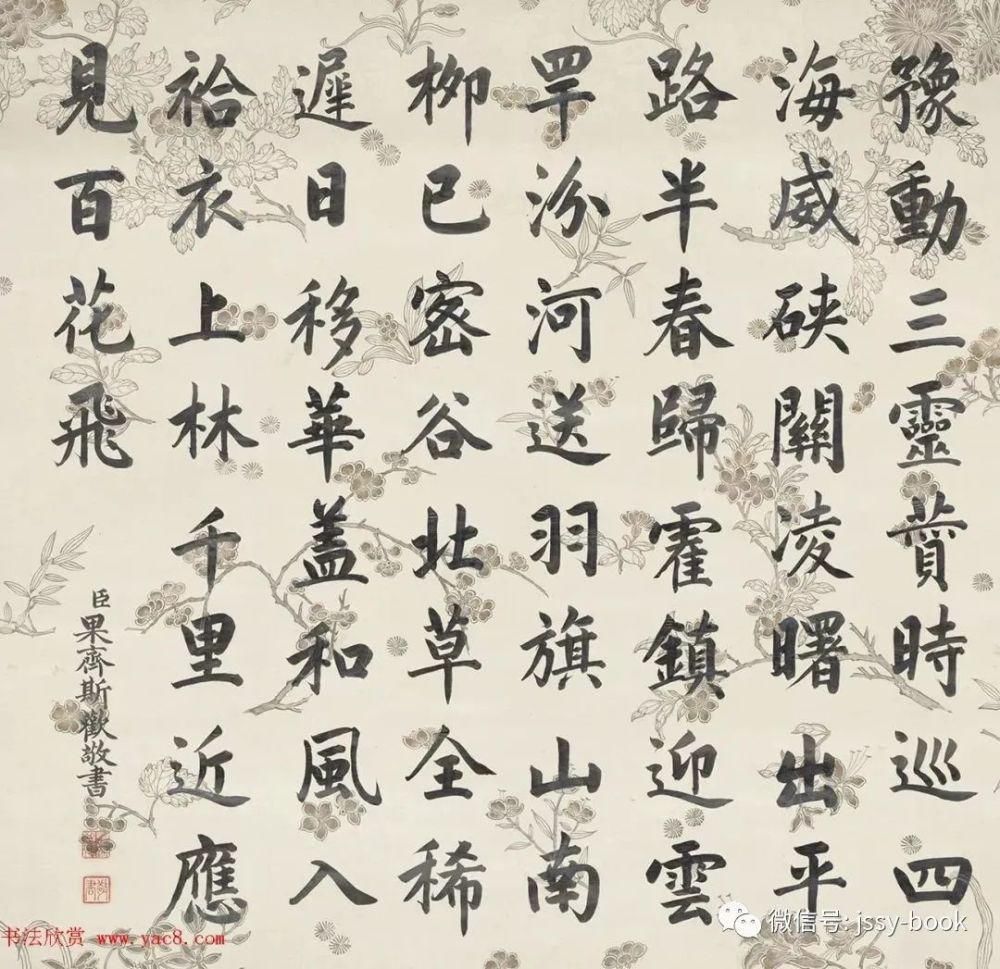 豫動三靈賛時巡四
海威硤關凌曙出平
路半春歸霍鎮迎雲
罕汾河送羽旗山南
柳已密谷北草全稀
遲日移華蓋和風入
袷衣上林千里近應
見百花飛
臣果齊斯歡敬書
书法欣赏 www.yac8.com
微信号: jssy-book